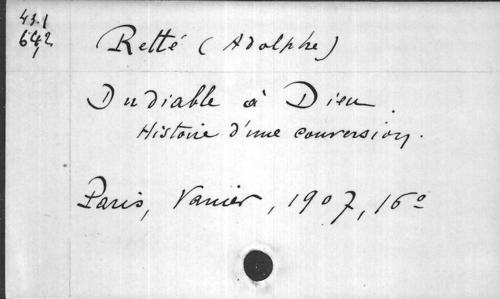 43.1
642
1
Retté (Adolphe)
Du diable à Dieu
Histoire d'une conversion.
Paris, Vanier, 1907, 16º